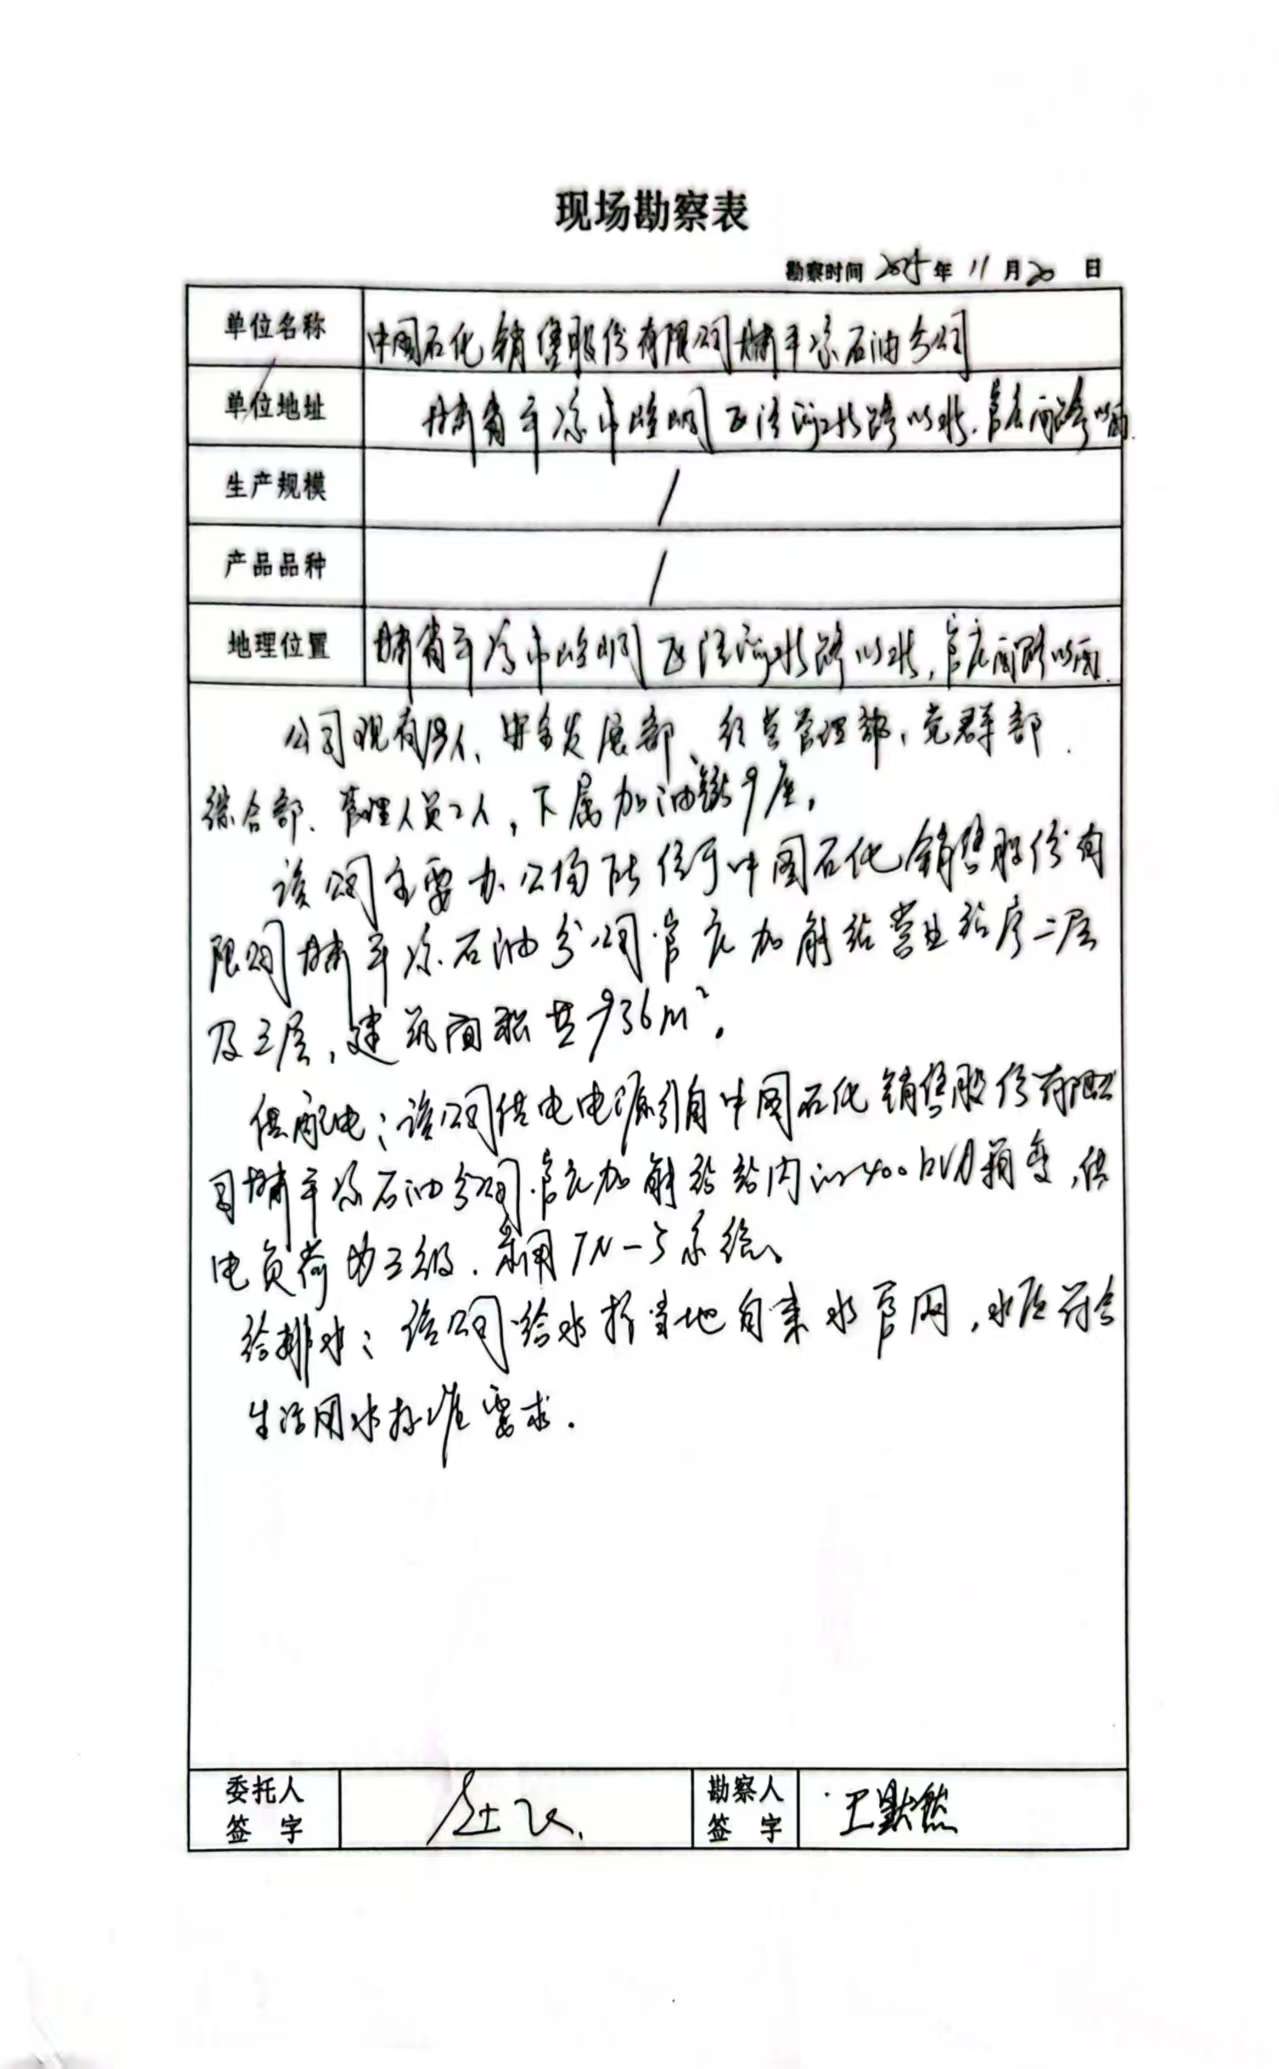 现场勘察表
勘察时间 2025年 11月20日
单位名称 中国石化销售股份有限公司甘肃平凉石油分公司
单位地址 甘肃省平凉市崆峒区泾河北路以北,官庄南路以西.
生产规模 /
产品品种 /
地理位置 甘肃省平凉市崆峒区泾河北路以北,官庄南路以西.
公司现有 人、安全发展部、经营管理部、党群部.
综合部、管理人员2人,下属加油站9座,
该公司主要办公场所位于中国石化销售股份有
限公司甘肃平凉石油分公司官庄加 站营业站房二层
及三层,建筑面积共936m²。
供配电:该公司供电电源引自中国石化销售股份有限公
司甘肃平凉石油分公司官庄加 站站内的400kVA箱变,供
电负荷为三级.采用TN-S系统。
给排水:该公司给水接当地自来水管网,水质符合
生活用水标准要求.
委托人
签 字
勘察人 王默然
签 字